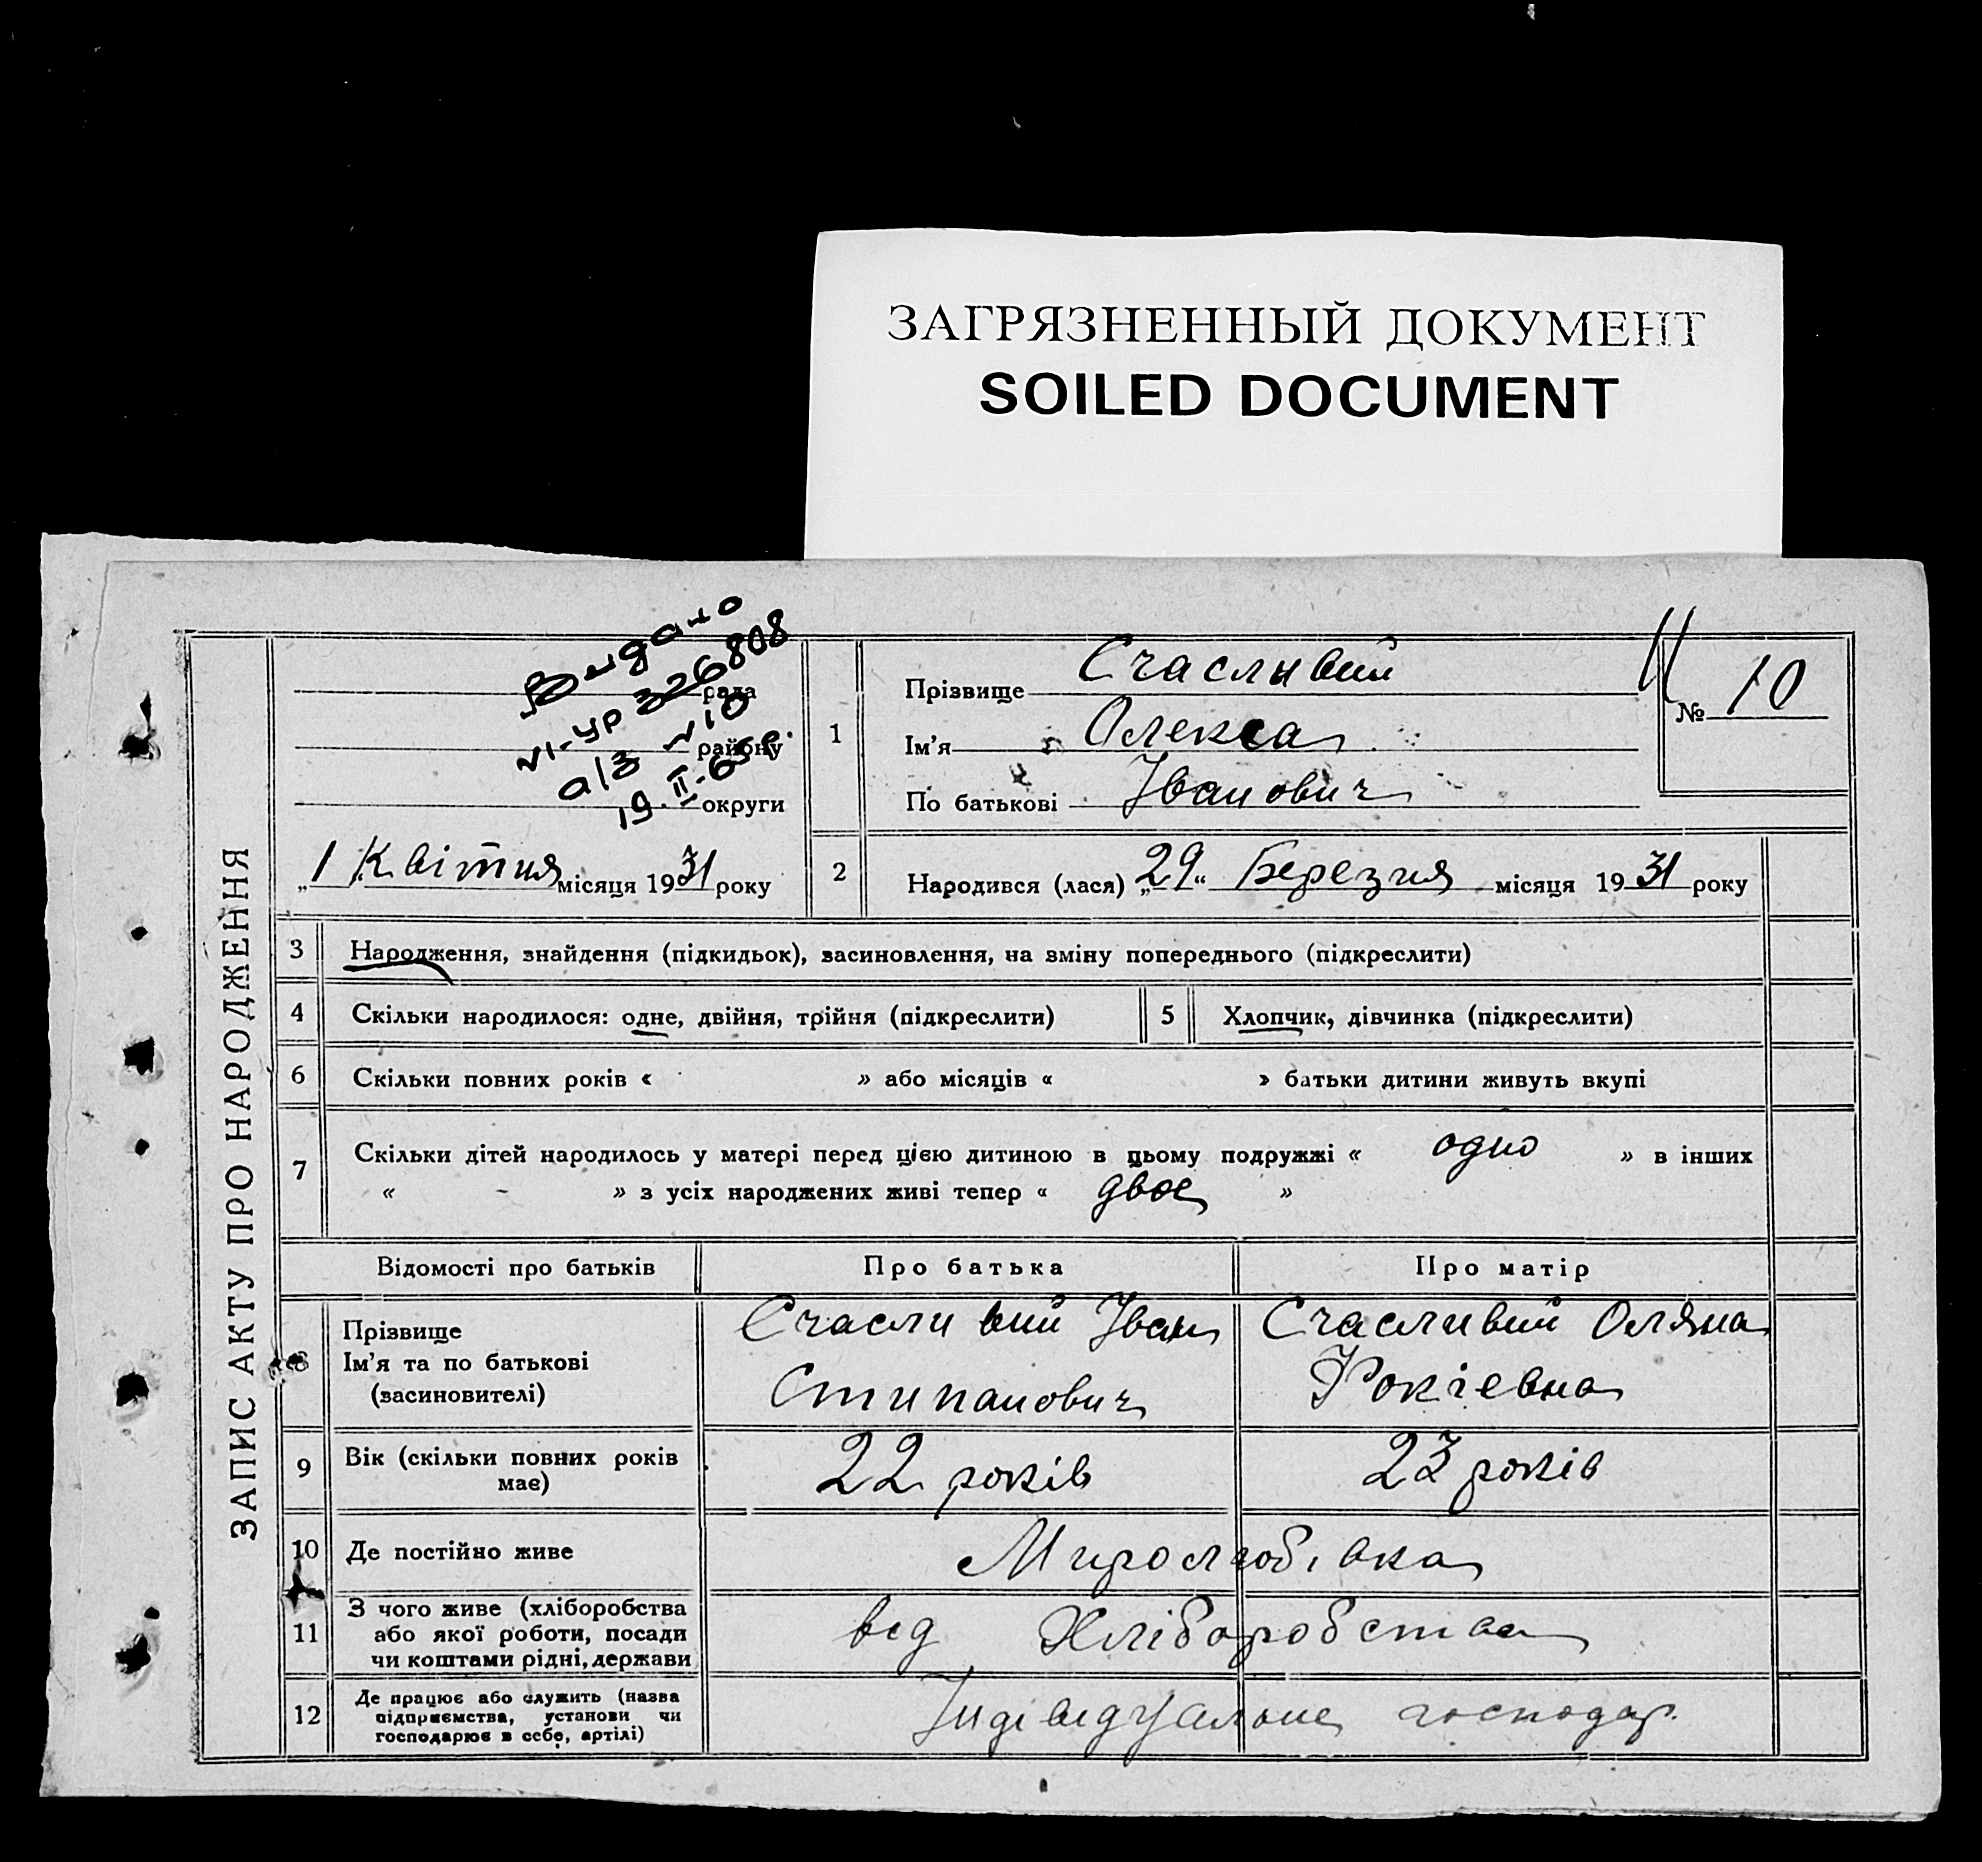 ЗАГРЯЗНЕННЫЙ ДОКУМЕНТ
SOILED DOCUMENT
ЗАПИС АКТУ ПРО НАРОДЖЕННЯ
Видано
VI-УР 326808
а/з №10
19.II-65р.
рада
району
округи
„1“ Квітня місяця 1931 року
№ 10
1 Прізвище Счасливий
Ім'я Олекса
По батькові Іванович
2 Народився (лася) „29“ Березня місяця 1931 року
3 Народження, знайдення (підкидьок), засиновлення, на зміну попереднього (підкреслити)
4 Скільки народилося: одне, двійня, трійня (підкреслити)
5 Хлопчик, дівчинка (підкреслити)
6 Скільки повних років « » або місяців « » батьки дитини живуть вкупі
7 Скільки дітей народилось у матері перед цією дитиною в цьому подружжі « одно » в інших
« - » з усіх народжених живі тепер « двоє »
Відомості про батьків Про батька Про матір
8 Прізвище
Ім'я та по батькові
(засиновителі)
Счасливий Іван
Стипанович
Счасливий Оляна
Фокієвна
9 Вік (скільки повних років
має)
22 років 23 років
10 Де постійно живе Миролюбівка
11 З чого живе (хліборобства
або якої роботи, посади
чи коштами рідні, держави
від Хліборобства
12 Де працює або служить (назва
підприємства, установи чи
господарює в себе, артілі)
Індівідуальне господар.